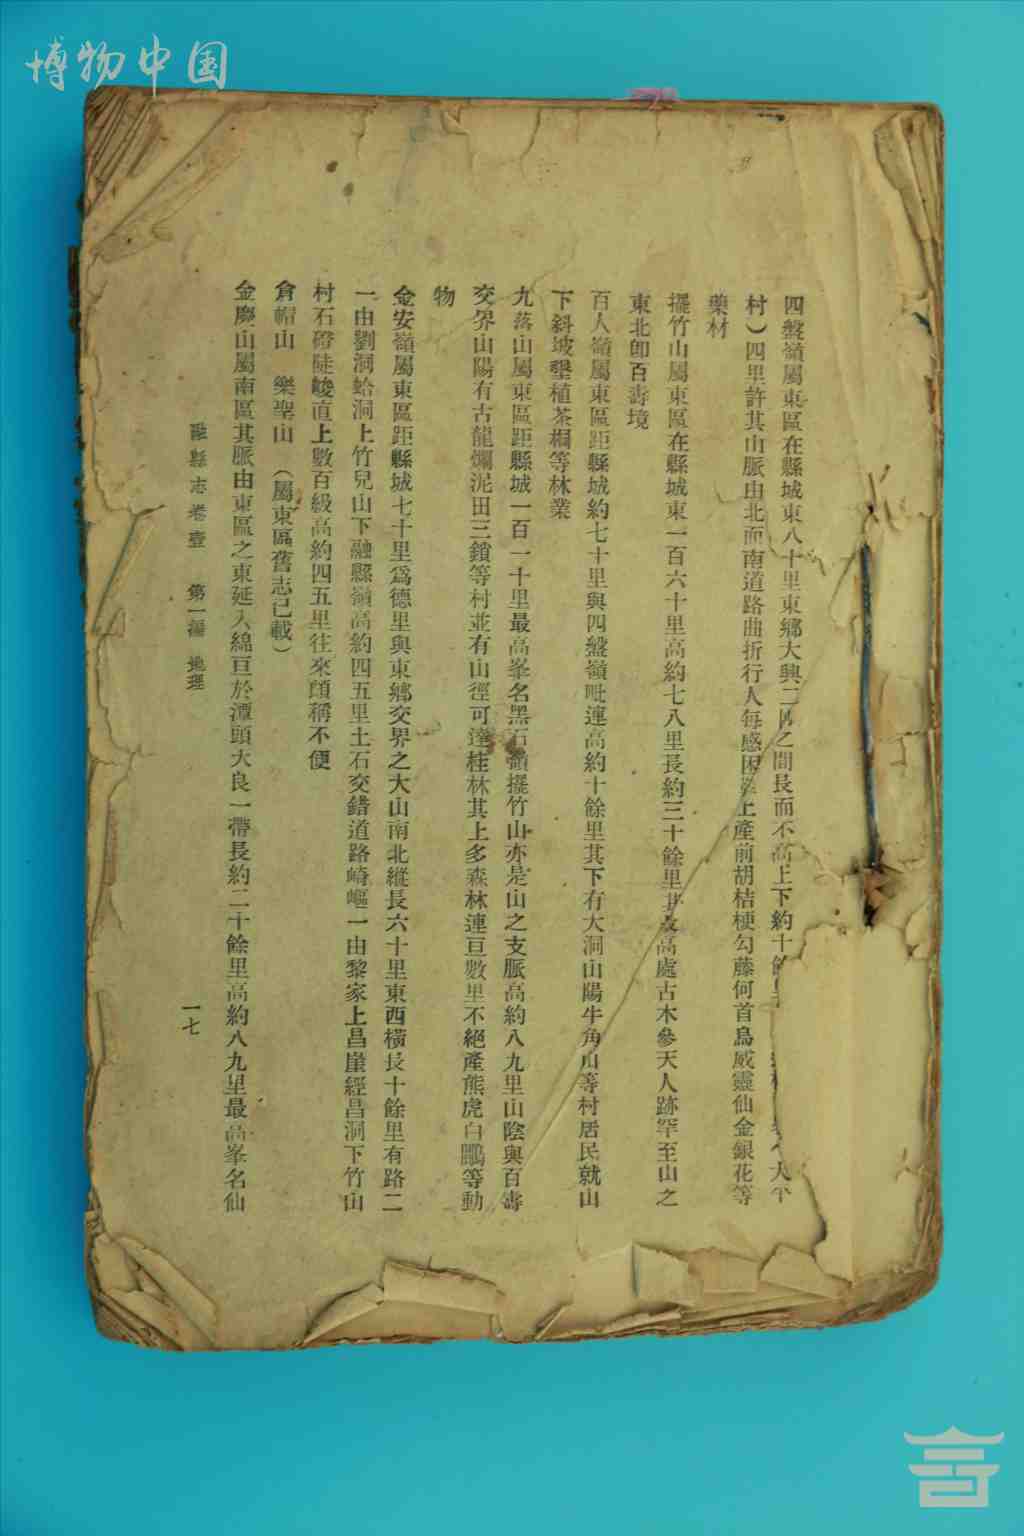 博物中国
四盤嶺屬東區在縣城東八十里東鄉大興二區之間長而不高上下約十餘里
村)四里許其山脈由北而南道路曲折行人每感困難上產前胡桔梗勾藤何首烏威靈仙金銀花等
藥材
擺竹山屬東區在縣城東一百六十里高約七八里長約三十餘里其最高處古木參天人跡罕至山之
東北卽百壽境
百人嶺屬東區距縣城約七十里與四盤嶺毗連高約十餘里其下有大洞山陽牛角山等村居民就山
下斜坡墾植茶桐等林業
九落山屬東區距縣城一百一十里最高峯名黑石嶺擺竹山亦是山之支脈高約八九里山陰與百壽
交界山陽有古龍爛泥田三鎖等村並有山徑可達桂林其上多森林連亘數里不絕產熊虎白鷴等動
物
金安嶺屬東區距縣城七十里爲德里與東鄉交界之大山南北縱長六十里東西橫長十餘里有路二
一由劉洞蛤洞上竹兒山下融縣嶺高約四五里土石交錯道路崎嶇一由黎家上昌崖經昌洞下竹山
村石磴陡峻直上數百級高約四五里往來頗稱不便
倉帽山 樂聖山 (屬東區舊志已載)
金慶山屬南區其脈由東區之東延入綿亘於潭頭大良一帶長約二十餘里高約八九里最高峯名仙
融縣志卷壹 第一編 地理
一七